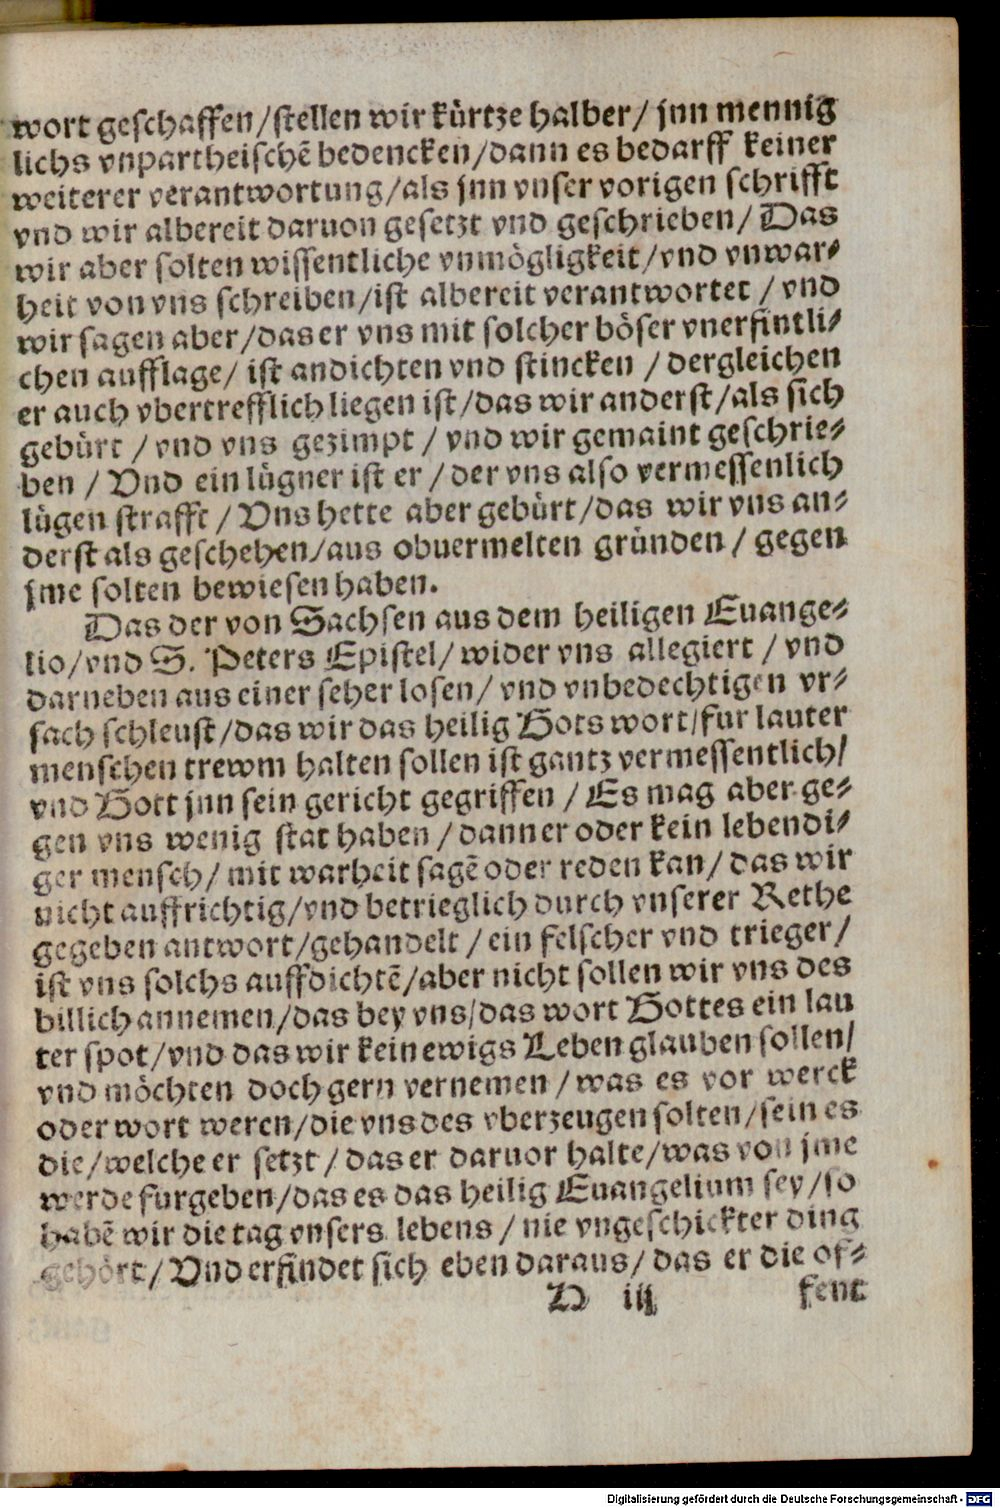 wort geschaffen/stellen wir kürtze halber/ jnn mennig
lichs vnpartheischẽ bedencken/dann es bedarff keiner
weiterer verantwortung/als jnn vnser vorigen schrifft
vnd wir albereit daruon gesetzt vnd geschrieben/ Das
wir aber solten wissentliche vnmögligkeit/vnd vnwar⸗
heit von vns schreiben/ist albereit verantwortet / vnd
wir sagen aber/das er vns mit solcher böser vnerfintli⸗
chen aufflage/ ist andichten vnd stincken / dergleichen
er auch vbertrefflich liegen ist/das wir anderst/als sich
gebürt / vnd vns gezimpt / vnd wir gemaint geschrie⸗
ben / Vnd ein lügner ist er / der vns also vermessenlich
lügen strafft / Vns hette aber gebürt/das wir vns an⸗
derst als geschehen/aus obuermelten gründen / gegen
jme solten bewiesen haben.
Das der von Sachsen aus dem heiligen Euange⸗
lio/vnd S. Peters Epistel/ wider vns allegiert / vnd
darneben aus einer seher losen/ vnd vnbedechtigen vr⸗
sach schleust/das wir das heilig Gots wort/fur lauter
menschen trewm halten sollen ist gantz vermessentlich/
vnd Gott jnn sein gericht gegriffen / Es mag aber ge⸗
gen vns wenig stat haben / dann er oder kein lebendi⸗
ger mensch/ mit warheit sagẽ oder reden kan/ das wir
nicht auffrichtig/vnd betrieglich durch vnserer Rethe
gegeben antwort/gehandelt / ein felscher vnd trieger/
ist vns solchs auffdichtẽ/aber nicht sollen wir vns des
billich annemen/das bey vns/das wort Gottes ein lau
ter spot/vnd das wir kein ewigs Leben glauben sollen/
vnd möchten doch gern vernemen / was es vor werck
oder wort weren/die vns des vberzeugen solten/sein es
die/welche er setzt / das er daruor halte/was von jme
werde furgeben/das es das heilig Euangelium sey/so
habẽ wir die tag vnsers lebens / nie vngeschickter ding
gehört/ Vnd erfindet sich eben daraus/ das er die of⸗
D iij fent
Digitalisierung gefördert durch die Deutsche Forschungsgemeinschaft - DFG